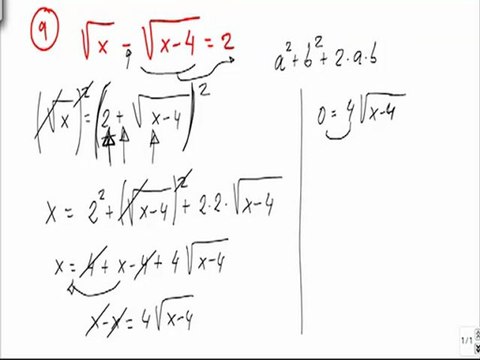 9 √x - √x-4 = 2
a² + b² + 2·a·b
(√x)² = (2 + √x-4)²
0 = 4√x-4
x = 2² + (√x-4)² + 2·2·√x-4
x = 4 + x - 4 + 4√x-4
x - x = 4√x-4
1/1